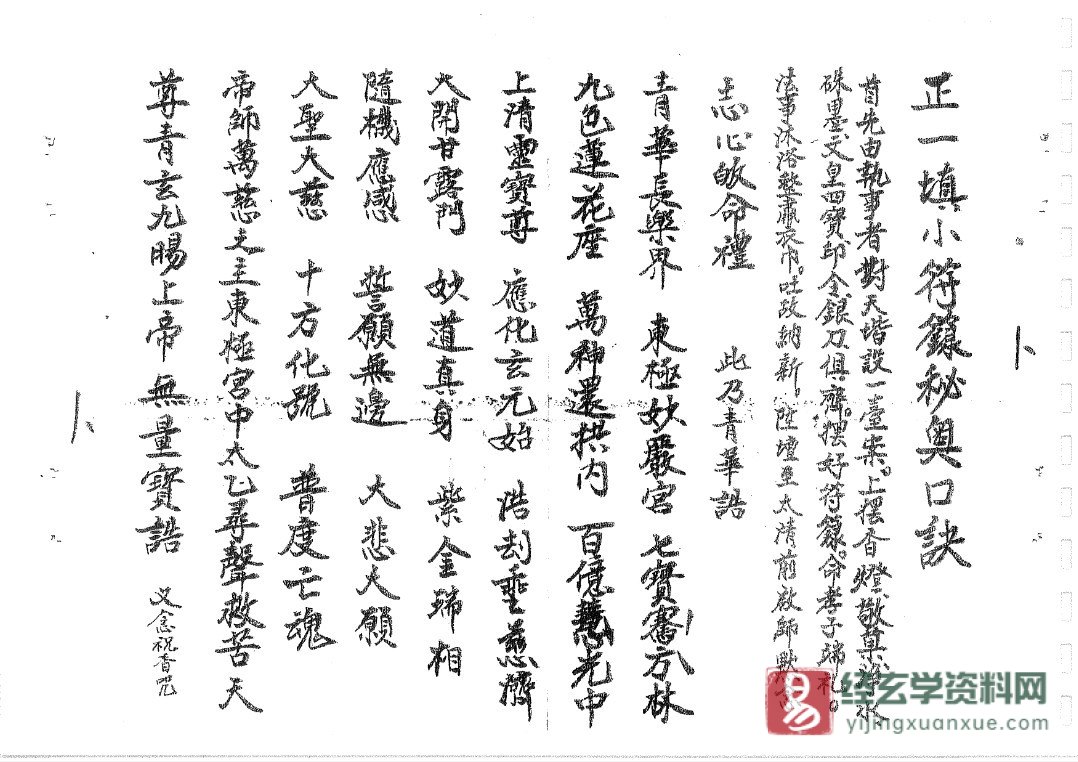 正一填小符籙秘奧口訣
首先由執事者對天堦設一臺案。上擺香燈、敬菓、淨水
硃墨、文皇四寶、印、金銀刀俱齊。擺好符籙。命孝子端礼。
法事沐浴整肅衣巾。吐故納新。陞壇至太清前啟師默
志心皈命禮 此乃青華誥
青華長樂界 東極妙嚴宮 七寶騫方林
九色蓮花座 萬神還拱內 百億慧光中
上清靈寶尊 應化玄元始 浩刦垂慈濟
大開甘露門 妙道真身 紫金瑞相
隨機應感 誓願無邊 大悲大願
大聖大慈 十方化號 普度亡魂
帝師萬慈之主東極宮中太乙尋聲救苦天
尊青玄九陽上帝 無量寶誥 又念祝香咒
卜
卜
易
经玄学资料网
yijingxuanxue.com